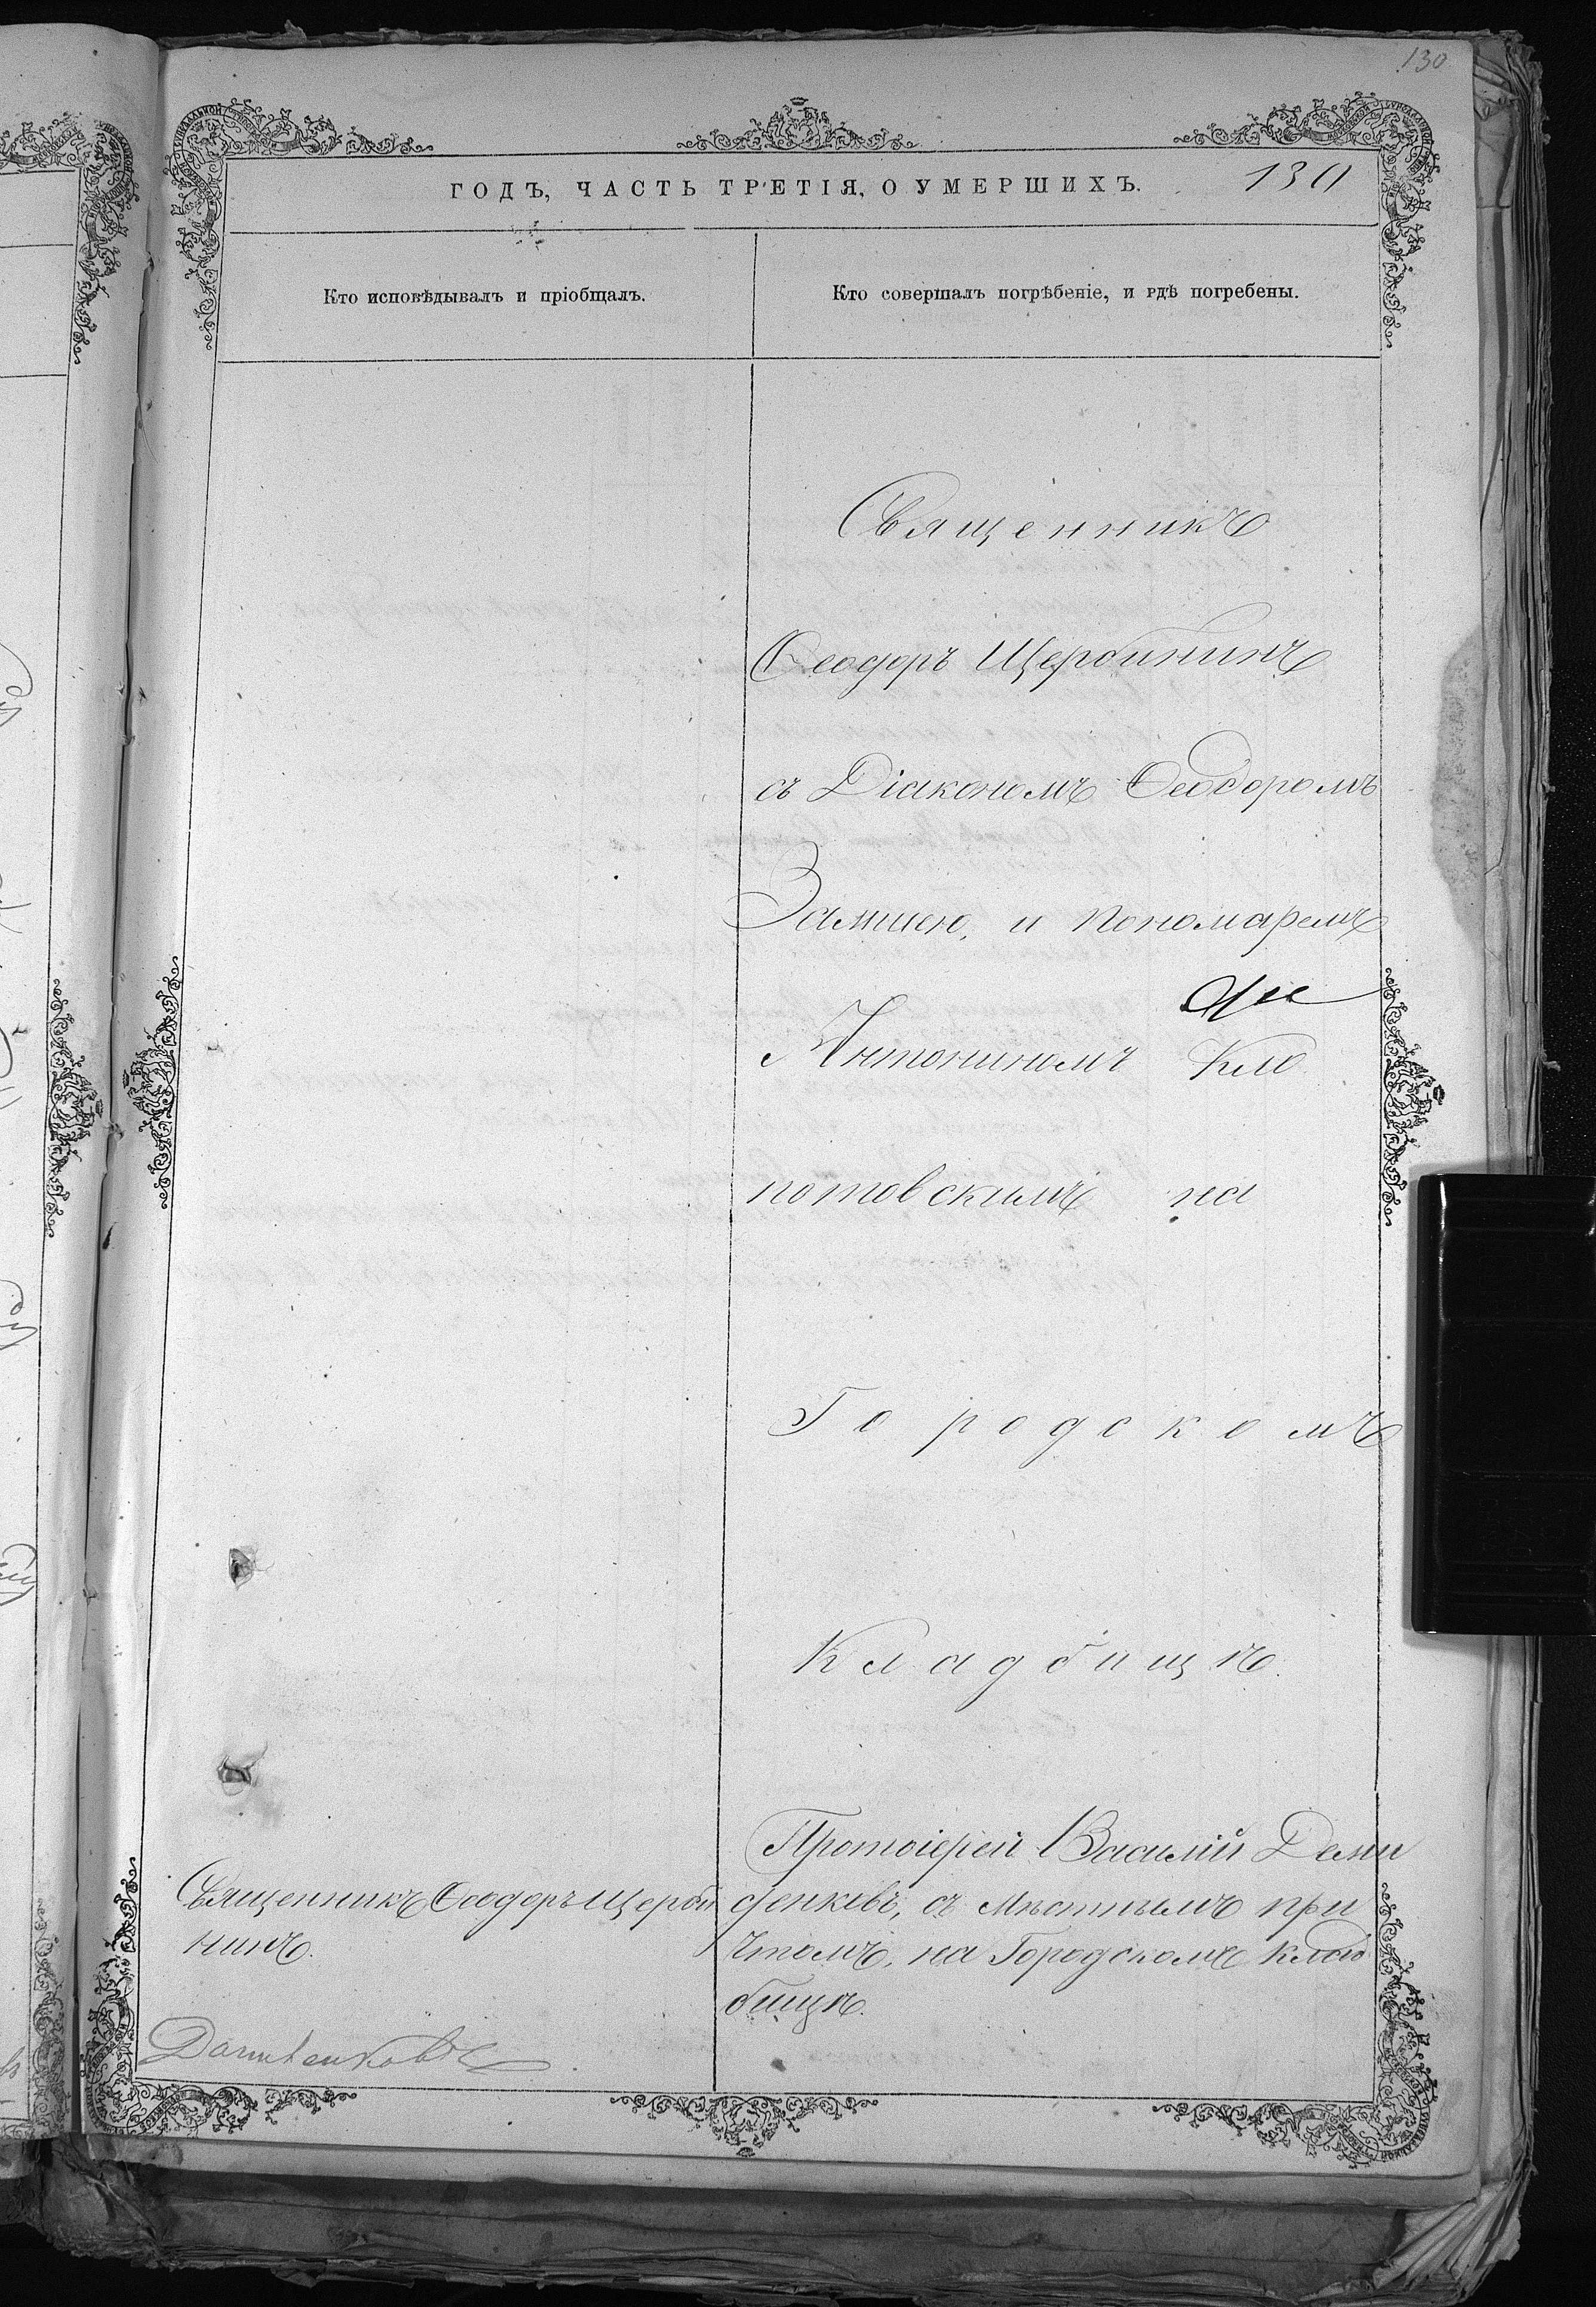 130
ГОДЪ, ЧАСТЬ ТРЕТІЯ, О УМЕРШИХЪ. 130
Кто исповѣдывалъ и пріобщалъ.
Кто совершалъ погрѣбеніе, и гдѣ погребены.
Священникъ
Ѳеодоръ Щербининъ
съ Діакономъ Ѳеодоромъ
и пономаремъ
Антониномъ Кло
потовскимъ на
Городскомъ
Кладбищѣ.
Священникъ Ѳеодоръ Щерби
нинъ.
Протоіерей Василій Деми
денковъ, съ Мѣстнымъ при
чтомъ, на Городскомъ клад
бищѣ.